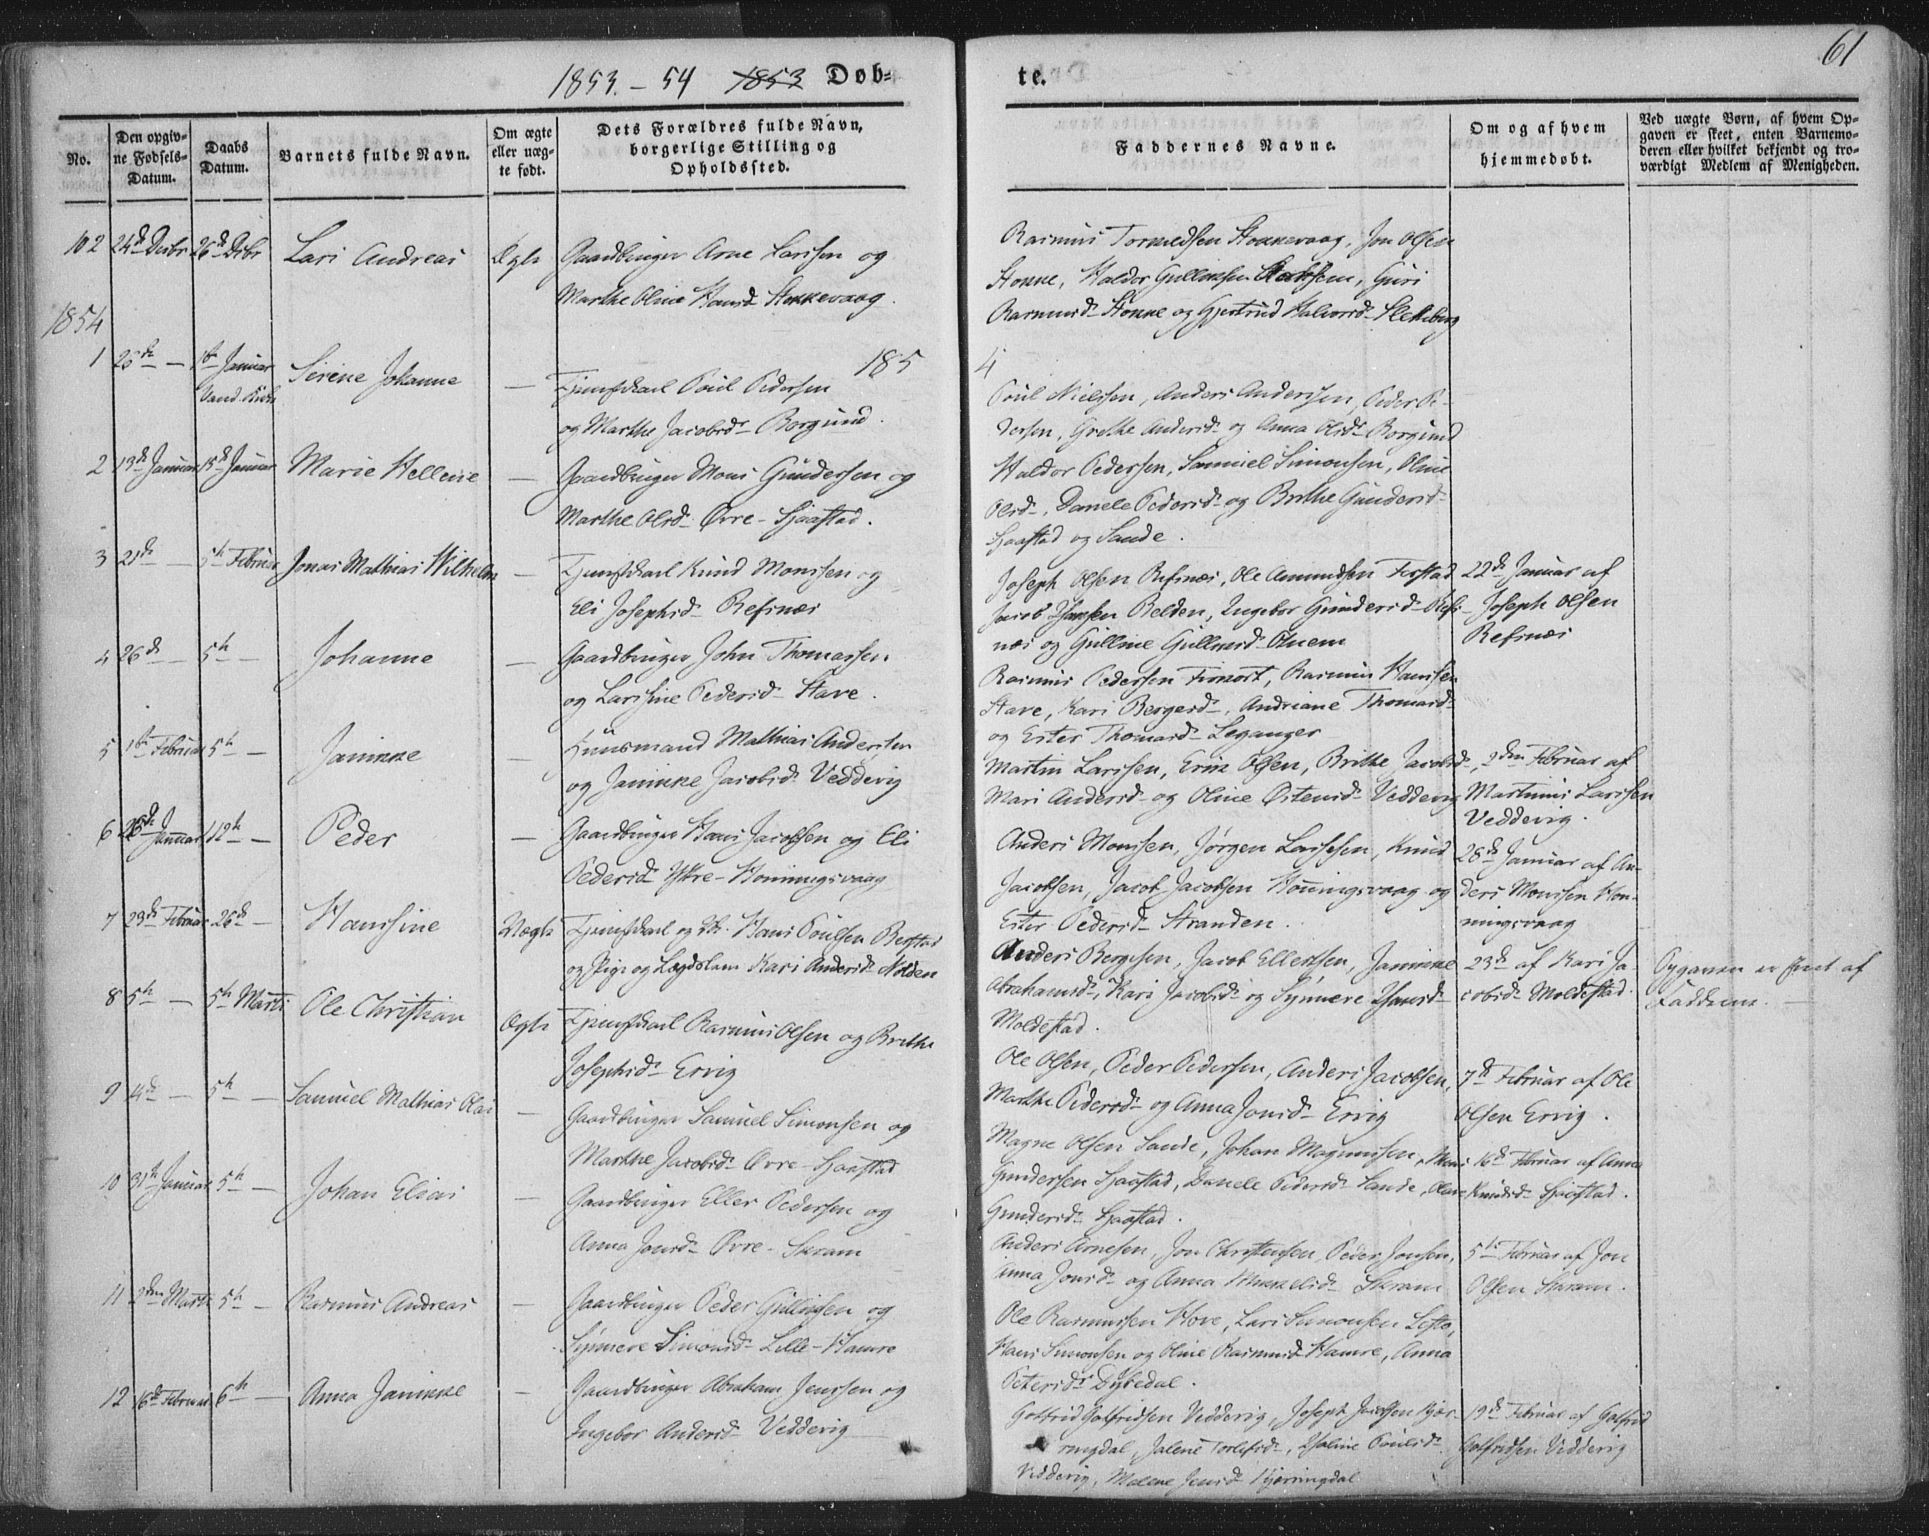 61
1853.-54 1853 Døb-
te.
No.
Den opgiv-
ne Fødsels-
Datum.
Daabs
Datum.
Barnets fulde Navn.
Om ægte
eller uæg-
te født.
Dets Forældres fulde Navn,
borgerlige Stilling og
Opholdssted.
Faddernes Navne.
Om og af hvem
hjemmedøbt.
Ved uægte Børn, af hvem Op-
gaven er skeet, enten Barnemo-
deren eller hvilket bekjendt og tro-
værdigt Medlem af Menigheden.
102 24de Decbr 26de Dcbr Lars Andreas Ægte Gaardbruger Arne Larssen og
Marthe Oline Hansd. Stokkevaag.
Rasmus Tormodsen Stokkevaag, Jon Olsen
Stokke, Haldor Gullaksen, Guri
Rasmusd. Stokke og Gjertrud Halvorsd. Sletteberg
1854
185
4
1 26de — 1ste Januar
Vand. Kirke
Serine Johanne — Tjenstkarl Poul Pedersen
og Marthe Jacobsd. Borgund.
Poul Nielssen, Anders Anderssen, Peder Pe-
dersen, Grethe Andersd. og Anna Olsd. Borgund
2 13de Januar 15de Januar Marie Hellene — Gaardbruger Mons Gunderssen og
Marthe Olsd. Øvre-Sjaastad.
Haldor Pedersen, Samuel Simonsen, Oline
Olsd., Danele Pedersd. og Brithe Gundersd.
Sjaastad og Sande.
3 21de — 5te Februar Jonas Mathias Wilhelm — Tjenstkarl Knud Monssen og
Eli Josephsd. Refsnæs
Joseph Olsen Refsnæs, Ole Amundsen Ferstad
Jacob Hansen Belden, Ingebor Gundersd. Refs-
næs og Gulline Gullaksd. Otnem
22de Januar af
Joseph Olsen
Refsnæs
4 26de — 5te — Johanne — Gaardbruger John Thomassen
og Larsine Pedersd. Stave.
Rasmus Pedersen Fimort, Rasmus Hanssen
Stave, Kari Bergersd., Andriane Thomasd.
og Ester Thomasd. Leganger
5 1ste Februar 5te — Jannikke — Huusmand Mathias Andersen
og Jannikke Jacobsd. Veddevig
Martin Larssen, Erik Olsen, Brithe Jacobsd.,
Mari Andersd. og Oline Østensd. Veddevig
2den Februar af
Martinus Larssen
Veddevig.
6 26de Januar 12te — Peder — Gaardbruger Hans Jacobsen og Eli
Pedersd. Ytre-Honningsvaag
Anders Monssen, Jørgen Larssen, Knud
Jacobsen, Jacob Jacobsen Honningsvaag og
Ester Pedersd. Stranden.
28de Januar af An-
ders Monssen Hon-
ningsvaag
7 23de Februar 26de — Hansine Uægte Tjenstkarl og Hans Poulsen Berstad
og Pige og Lægdslem Kari Andersd. Nolden
Anders Bergesen, Jacob Ellertsen, Jannikke
Abrahamsd., Kari Jacobsd. og Synneve Hansd.
Moldestad.
23de af Kari Ja-
cobsd. Moldestad.
Opgaven er skeet af
Fadderne. —
8 5te — 5te Marts Ole Christian Ægte Tjenstkarl Rasmus Olsen og Brithe
Josephsd. Ervig
Ole Olsen, Peder Pedersen, Anders Jacobsen,
Marthe Pedersd. og Anna Jonsd. Ervig
7de Februar af Ole
Olsen Ervig.
9 4de — 5te — Samuel Mathias Olai — Gaardbruger Samuel Simonsen og
Marthe Jacobsd. Øvre-Sjaastad
Magne Olsen Sande, Johan Magnussen, Mons
Gunderssen Sjaastad, Danele Pedersd. Sande, Oline
Gundersd. Sjaastad.
16de Februar af Anna
Knudsd. Sjaastad.
10 31te Januar 5te — Johan Elias — Gaardbruger Eller Pedersen og
Anna Jonsd. Øvre-Skram
Anders Arnesen, Jon Christensen, Peder Jonsen,
Anna Jonsd. og Anna Mikkelsd. Skram
5te Februar af Jon
Olsen Skram.
11 2den Marts 5te — Rasmus Andreas — Gaardbruger Peder Gulliksen og
Synneve Simonsd. Lille-Hamre
Ole Rasmussen Hove, Lars Simonsen Lefto,
Hans Simonsen og Oline Rasmusd. Hamre, Anna
Petersd. Dybedal.
12 16de Februar 6te — Anna Jannikke — Gaardbruger Abraham Jenssen og
Ingebor Andersd. Veddevig
Gotfrid Gotfridsen Veddevig, Joseph Jacobsen Kjør-
ringdal, Jalene Torlefsd., Hsaline Poulsd.
Veddevig, Malene Jensd. Kjørringdal
19de Februar af Gotfrid
Gotfridsen Veddevig